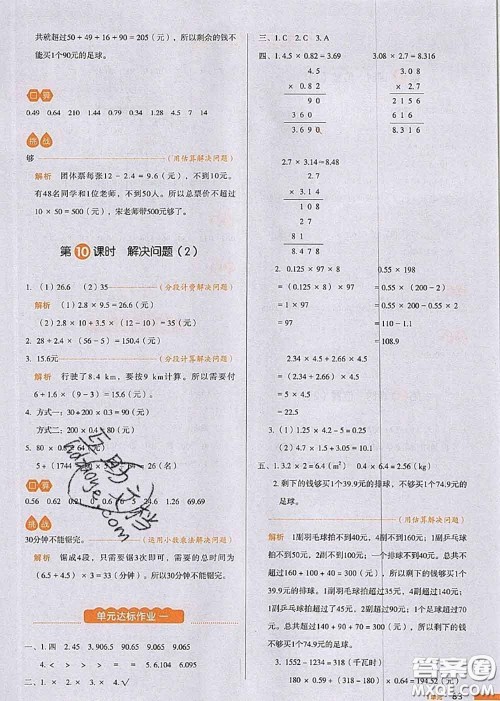 共就超过50 + 49 + 16 + 90 = 205（元），所以剩余的钱不
能买1个90元的足球。
口算
0.49 0.64 210 1.44 0.39 0.34 1.28 4.5 7 14
挑战
够（用估算解决问题）
解析 团体票每张12 - 2.4 = 9.6（元），不到10元。
有48名同学和1位老师，不到50人。所以总票价不超过
10 × 50 = 500（元），宋老师带500元够了。
第10课时 解决问题（2）
1. （1）26.6 （2）35（分段计费解决问题）
解析 （1）2.8 × 9.5 = 26.6（元）
（2）2.8 × 10 + 3.5 × （12 - 10）= 35（元）
2. 28 + 2.4 × （56 - 5）= 150.4（元）
3. 15.6元（分段计算解决问题）
解析 行驶了8.4 km，要按9 km计算。所以需要付
6 + 1.6 × （9 - 3）= 15.6（元）。
4. 方式一：30 + 200 × 0.3 = 90（元）
方式二：200 × 0.4 = 80（元）
5. 80 × 0.8 = 64（元）
5 + （1744 - 64 × ）÷ 64 = 26（名）
口算
0.56 0.32 0.21 0 0.6 1.26 6.9 69.69
挑战
30分钟不能锯完。（运用小数乘法解决问题）
解析 锯成4段，只需要锯3次即可，需要的总时间为
（6.5 + 4.5）× 3 = 33（分钟），所以30分钟不能锯完。
单元达标作业一
一、1. 四 2. 45 3. 9.065 6.9065 9.065
4. < > > > = < 5. 6.095 6.104
二、1. × 2. × 3. × 4. √
三、1. C 2. C 3. A
四、1. 4.5 × 0.82 = 3.69 3.08 × 2.7 = 8.316
4.5 3.08
× 0.82 × 2.7
90 2156
360 616
3.690 8.316
2.7 × 3.14 = 8.478
3.14
× 2.7
2198
628
8.478
2. 0.125 × 97 × 8 0.55 × 200 - 0.55 × 2
= 0.125 × 8 × 97 = 0.55 × （200 - 2）
= 1 × 97 = 0.55 × 198
= 97 = 110 - 1.1
= 108.9
2.34 × 4.5 + 2.66 × 4.5
= （2.34 + 2.66）× 4.5
= 5 × 4.5
= 22.5
3. （1）0.125 × 4.2 - 0.5 = 0.025
（2）10 × 1.25 × 1.6 = 20
五、1. 3.2 × 2 = 6.4（m²） 0.4 × 6.4 = 2.56（kg）
2. 剩下的钱够买1个39.9元的排球，不够买1个74.9元的
排球。（用估算解决问题）
解析 1副羽毛球拍不到40元，4副羽毛球拍不到
160元。1副乒乓球拍不到50元，2副乒乓球拍不到
100元。1个排球不到40元，一个排球不够40元，总共不
超过160 + 100 + 40 = 300（元），所以剩下的钱够买1个
39.9元的排球。1副羽毛球拍超过35元，4副超过140元。
1副乒乓球拍超过45元，2副超过90元。1个排球超过
70元。总共超过140 + 90 + 70 = 300（元），所以剩下的
钱不够买1个74.9元的排球。
3. 1552 - 1230 = 322（千瓦时）